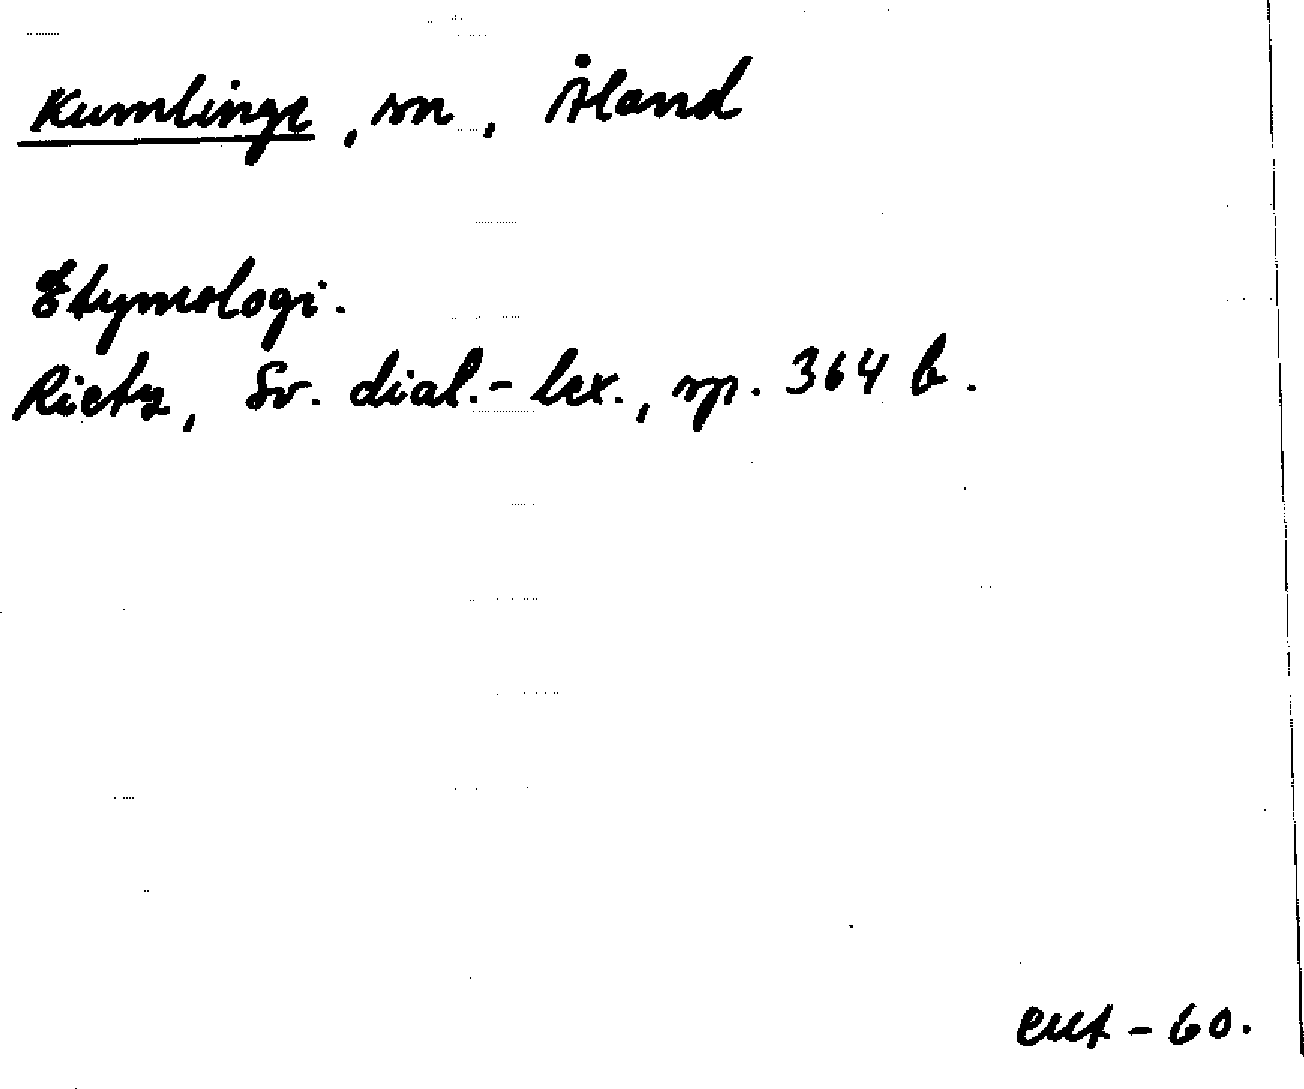 Kumlinge, sn, Åland
Etymologi.
Rietz, Sv. dial.-lex., sp. 364 b.
-60.